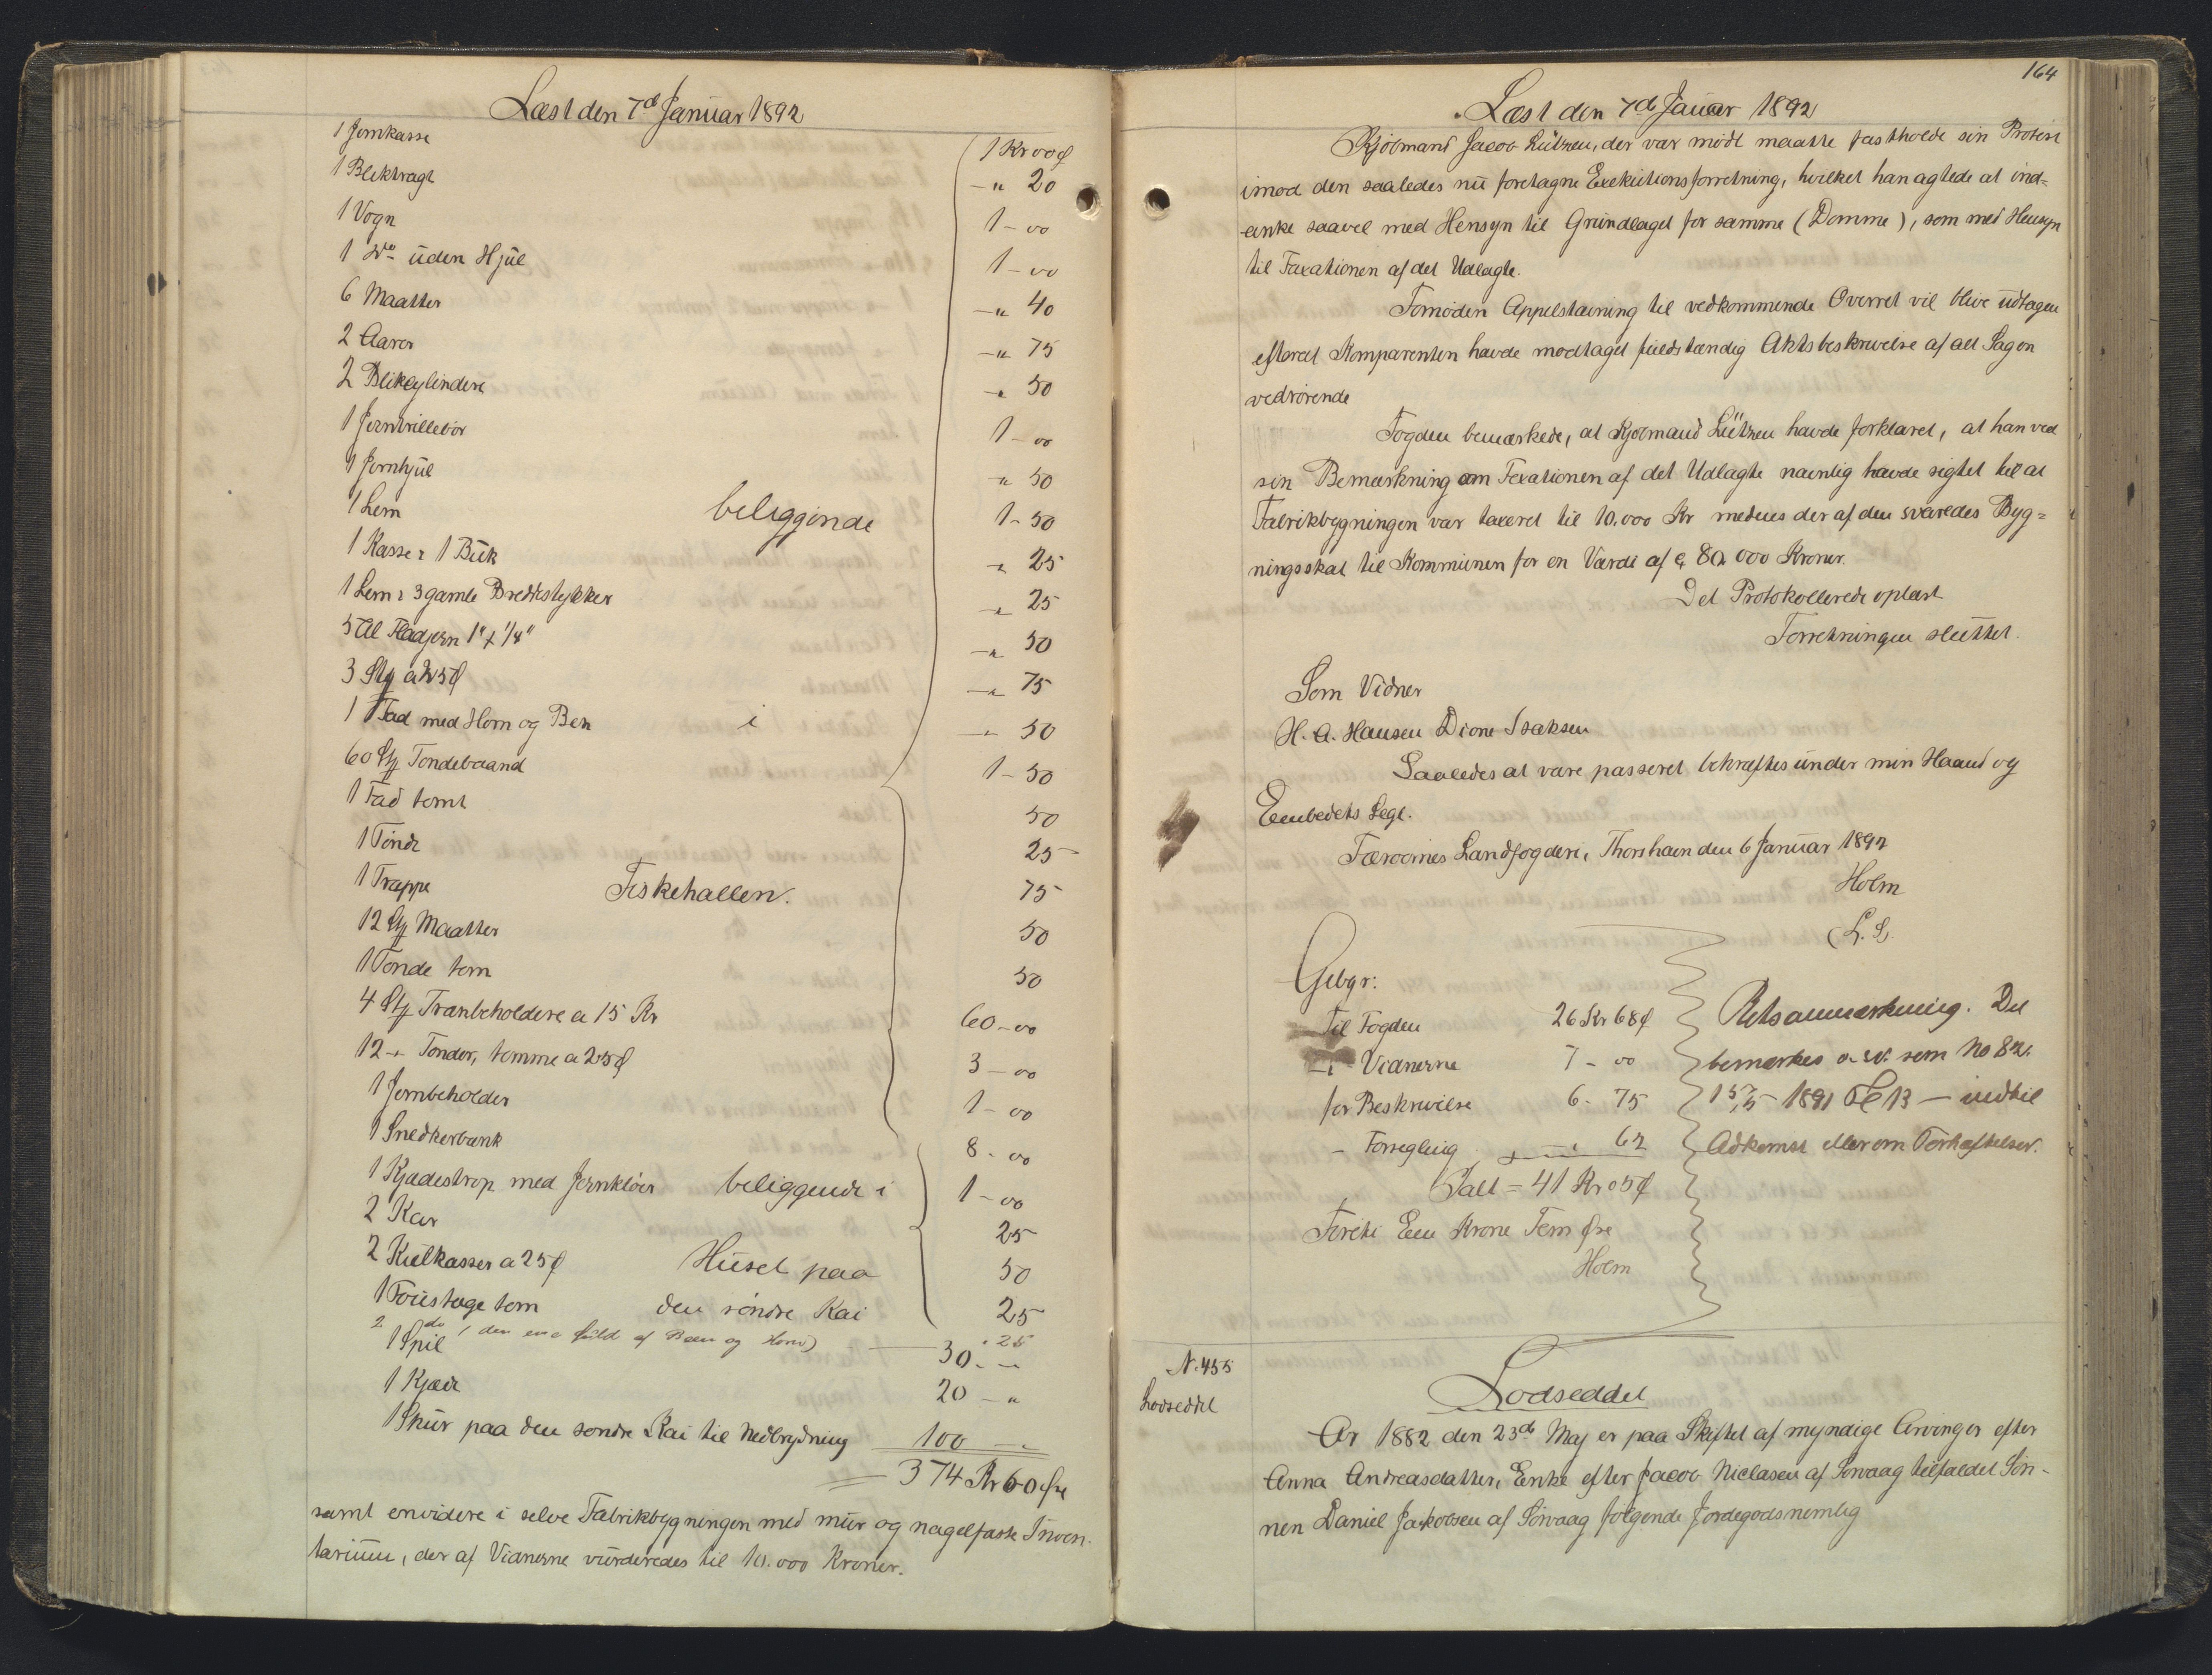 Læst den 7de Januar 1892
1 Jernkasse 1 Kr 00 Ø
1 Bliktragt - " 20
1 Vogn 1 - 00
1 Do uden Hjul 1 - 00
6 Maatter - " 40
2 Aarer - " 75
2 Blikcylindere - " 50
1 Jerntrillebør 1 - 00
1 Jernhjul - " 50
1 Lem beliggende 1 - 50
1 Kasse & 1 Buk - " 25
1 Lem & 3 gamle Bredestykker - " 25
5 Al Fladjern 1" x 1/4" - " 50
3 Stk a 25 Ø - " 75
1 Fad med Horn og Ben i - " 50
60 Stk Tøndebaand 1 - 50
1 Fad tomt 50
1 Tønde 25
1 Trappe Fiskehallen. 75
12 Stk Maatter 50
1 Tønde tom 50
4 Stk Tranbeholdere a 15 Kr 60 - 00
12 - Tønder, tomme a 25 Ø 3 - 00
1 Jernbeholder 1 - 00
1 Snedkerbænk 8 - 00
1 Kjædestrop med Jernkløer beliggende i 1 - 00
2 Kar 25
2 Kulkasser a 25 Ø Huset paa 50
1 Foustage tom den söndre Kai 25
2 do (den ene fuld af Been og Horn) - 25
1 Spil 30 - "
1 Kjæde 20 - "
1 Skur paa den søndre Kai til Nedbrydning 100 - "
= 374 Kr 60 Øre
samt envidere i selve Fabrikbygningen med mur og nagelfaste Inven-
tarium, der af Vidnerne vurderedes til 10.000 Kroner.
164
Læst den 7de Januar 1892
Kjøbmand Jacob Lützen, der var mödt maatte fastholde sin Protest
imod den saaledes nu foretagne Exekutionsforretning, hvilket han agtede at ind-
anke saavel med Hensyn til Grundlaget for samme (Domme), som med Hensyn
til Taxationen af det Udlagte.
Fornöden Appelstævning til vedkommende Overret vil blive udtagen
efterat Komparenten havde modtaget fuldstændig Aktsbeskrivelse af alt Sagen
vedrørende
Fogden bemærkede, at Kjøbmand Lützen havde forklaret, at han ved
sin Bemærkning om Taxationen af det Udlagte navnlig havde sigtet til at
Fabrikbygningen var taxeret til 10.000 Kr medens der af den svaredes Byg=
ningsskat til Kommunen for en Værdi af c 80.000 Kroner.
Det Protokollerede oplæst
Forretningen sluttet.
Som Vidner
H. A. Hansen Dione Isaksen
Saaledes at være passeret bekræftes under min Haand og
Embedets Segl.
Færøernes Landfogderi, Thorshavn den 6 Januar 1892
Holm
(L. S.
Gebyr:
Til Fogden 26 Kr 68 Ø
- Vidnerne 7 - 00
for Beskrivelse 6 - 75
- Forsegling - " 62
Ialt = 41 Kr 05 Ø
Fireti Een Krone Fem Øre
Holm
Retsanmærkning. Det
bemærkes o. s. v. som No 82.
15/5 1891 Fol 13 - indtil
Adkomst ellerom Forhæftelser.
N. 455
Lodseddel
Lodseddel
Ar 1882 den 23de Maj er paa Skiftet af myndige Arvinger efter
Anna Andreasdatter, Enke efter Jacob Niclasen af Sörvaag tilfaldet Sön-
nen Daniel Jakobsen af Sörvaag fölgende Jordegodsnemlig